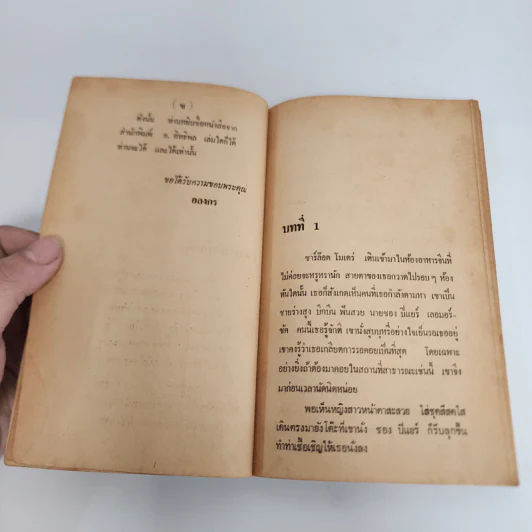 ( ๒ )
ดังนั้น ท่านหยิบชื่อหนังสือจาก
สำนักพิมพ์ อ. สิทธิพล เล่มใดก็ได้
ท่านจะได้ และได้เท่านั้น
ขอได้รับความขอบพระคุณ
อลงกร
บทที่ 1
ชาร์ล๊อต โมเตร่ เดินเข้ามาในห้องอาหารชั้นที่
ไม่ค่อยจะหรูหรานัก สายตาของเธอกวาดไปรอบๆ ห้อง
ทันใดนั้น เธอก็สังเกตเห็นคนที่เธอกำลังตามหา เขาเป็น
ชายร่างสูง บิกบิน พันสวย นายของ ปิแอร์ เลอมอร์-
ซัค คนนี้เธอรู้จักดี เขานั่งสูบบุหรี่อย่างใจเย็นรอเธออยู่
เขาคงรู้ว่าเธอเกลียดการรอคอยเป็นที่สุด โดยเฉพาะ
อย่างยิ่งถ้าต้องมาคอยในสถานที่สาธารณะเช่นนี้ เขาจึง
มาก่อนเวลานัดนิดหน่อย
พอเห็นหญิงสาวหน้าตาสะสวย ใส่ชุดสีสดใส
เดินตรงมายังโต๊ะที่เขานั่ง ของ ปิแอร์ ก็รีบลุกขึ้น
ทำท่าเชื้อเชิญให้เธอนั่งลง